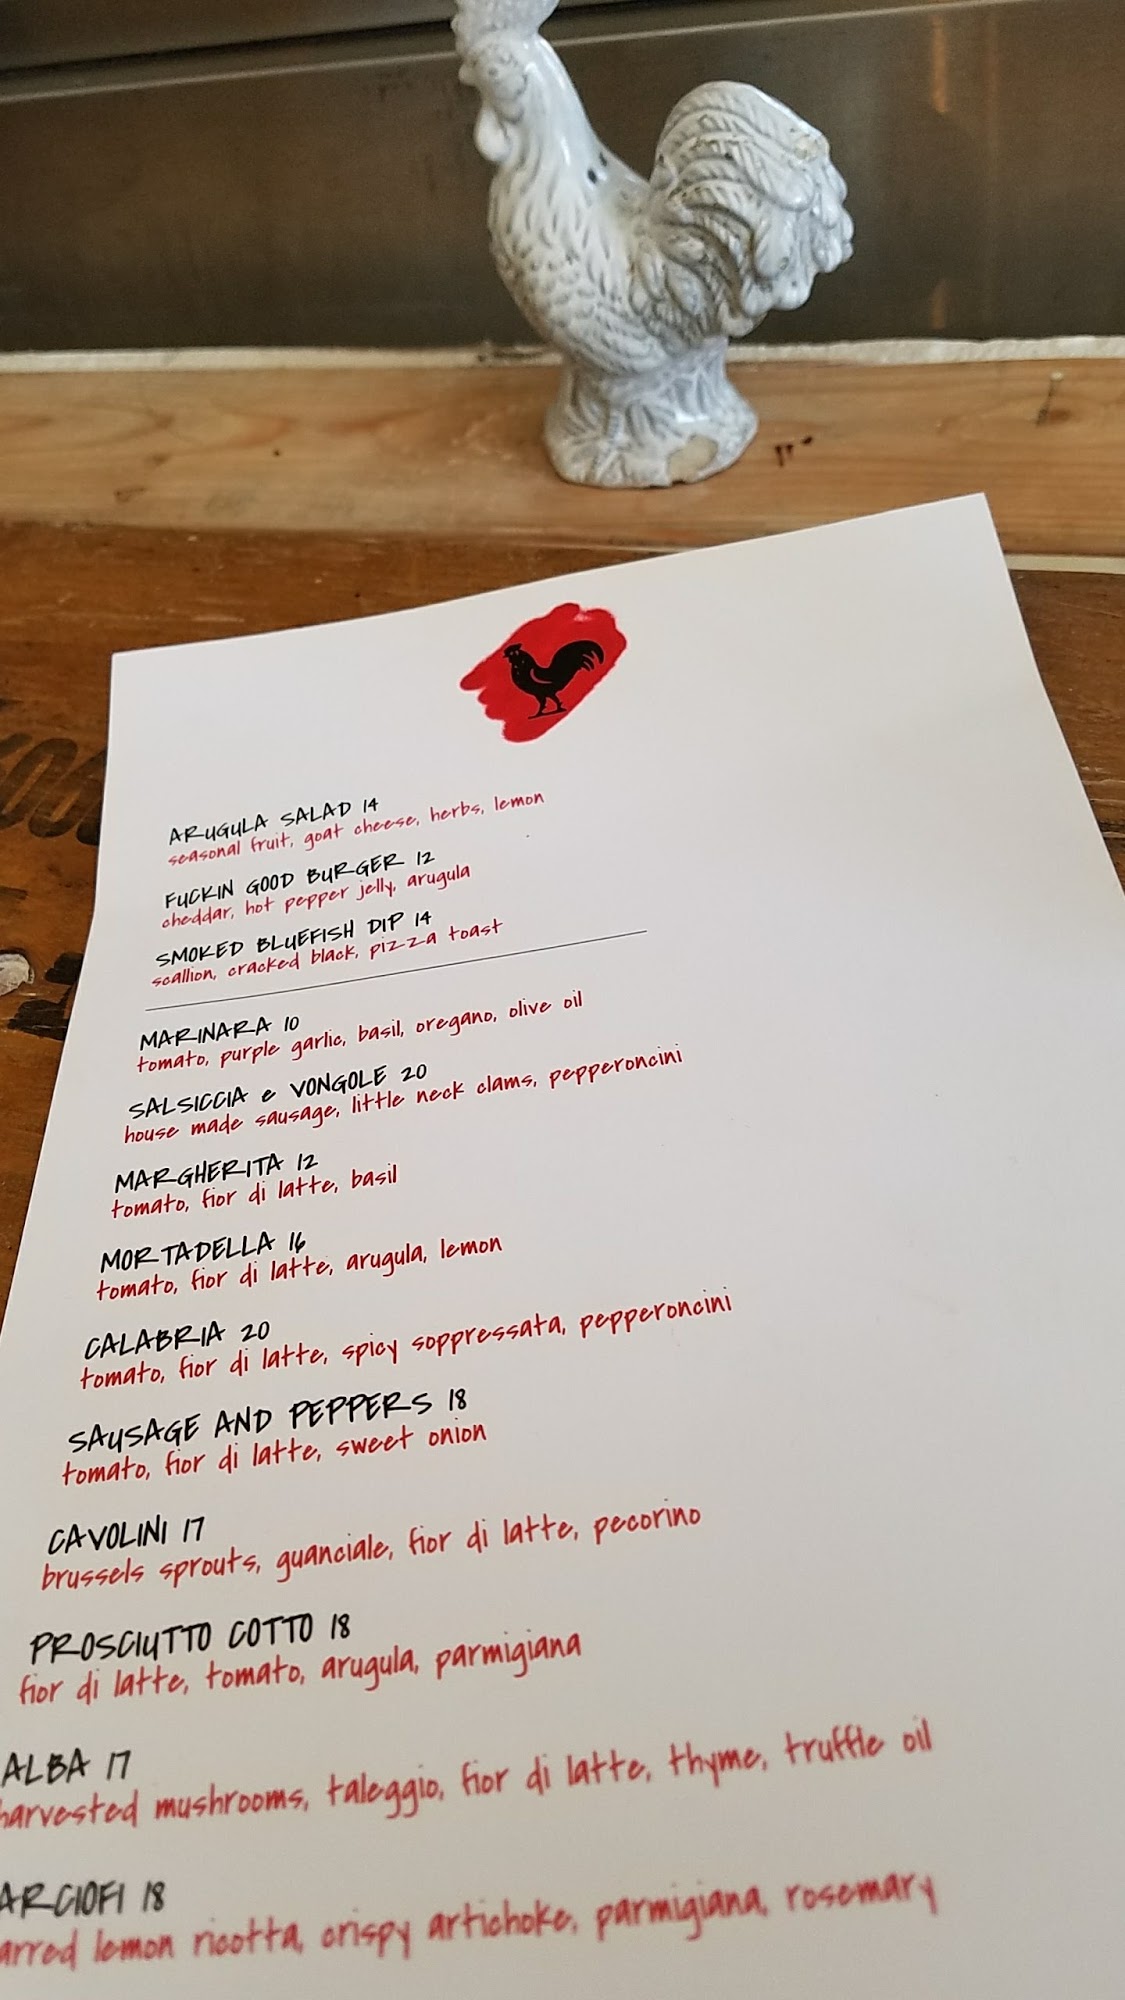 ARUGULA SALAD 14
seasonal fruit, goat cheese, herbs, lemon
FUCKIN GOOD BURGER 12
cheddar, hot pepper jelly, arugula
SMOKED BLUEFISH DIP 14
scallion, cracked black, pizza toast
MARINARA 10
tomato, purple garlic, basil, oregano, olive oil
SALSICCIA e VONGOLE 20
house made sausage, little neck clams, pepperoncini
MARGHERITA 12
tomato, fior di latte, basil
MORTADELLA 16
tomato, fior di latte, arugula, lemon
CALABRIA 20
tomato, fior di latte, spicy soppressata, pepperoncini
SAUSAGE AND PEPPERS 18
tomato, fior di latte, sweet onion
CAVOLINI 17
brussels sprouts, guanciale, fior di latte, pecorino
PROSCIUTTO COTTO 18
fior di latte, tomato, arugula, parmigiana
ALBA 17
harvested mushrooms, taleggio, fior di latte, thyme, truffle oil
ARCIOFI 18
arred lemon ricotta, crispy artichoke, parmigiana, rosemary